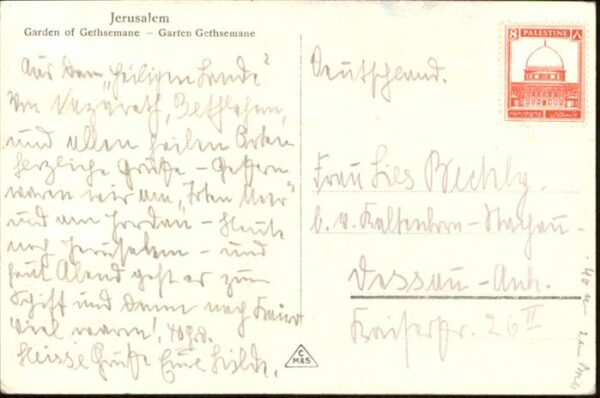 Jerusalem
Garden of Gethsemane – Garten Gethsemane
Aus dem „Heiligen Lande"
von Nazareth, Bethlehem,
und allen heilen Orten
herzliche Grüße – Gestern
waren wir am „Toten Meer"
und am Jordan – Heute
noch Jerusalem – und
heut Abend geht es zum
Schiff und dann nach Kairo
viel warm! 40gd.
Heisse Grüße Eure Hilde.
8 PALESTINE ٨
Deutschland.
Frau Lies Bechly.
b. v. Kaltenborn-Stachau-
Dessau-Anh.
Kaiserstr. 26 II
C
M&S